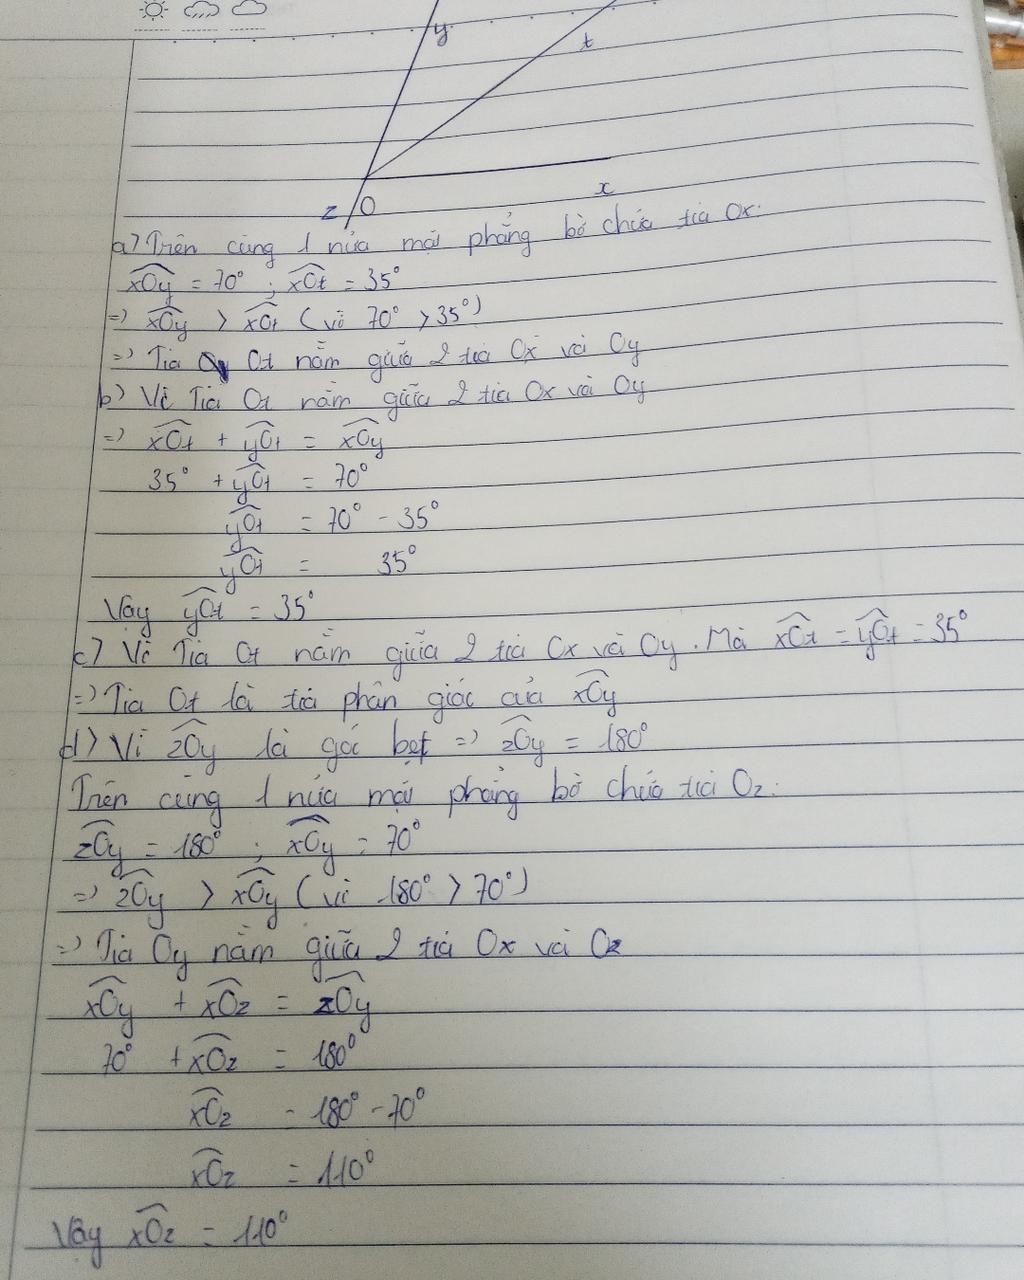 y
t
x
z O
a) Trên cùng 1 nửa mặt phẳng bờ chứa tia Ox:
xOy = 70° ; xOt = 35°
=> xOy > xOt (vì 70° > 35°)
=> Tia Ot nằm giữa 2 tia Ox và Oy
b) Vì Tia Ot nằm giữa 2 tia Ox và Oy
=> xOt + yOt = xOy
35° + yOt = 70°
yOt = 70° - 35°
yOt = 35°
Vậy yOt = 35°
c) Vì Tia Ot nằm giữa 2 tia Ox và Oy. Mà xOt = yOt = 35°
=> Tia Ot là tia phân giác của xOy
d) Vì zOy là góc bẹt => zOy = 180°
Trên cùng 1 nửa mặt phẳng bờ chứa tia Oz:
zOy = 180° ; xOy = 70°
=> zOy > xOy (vì 180° > 70°)
=> Tia Oy nằm giữa 2 tia Ox và Oz
xOy + xOz = zOy
70° + xOz = 180°
xOz = 180° - 70°
xOz = 110°
Vậy xOz = 110°